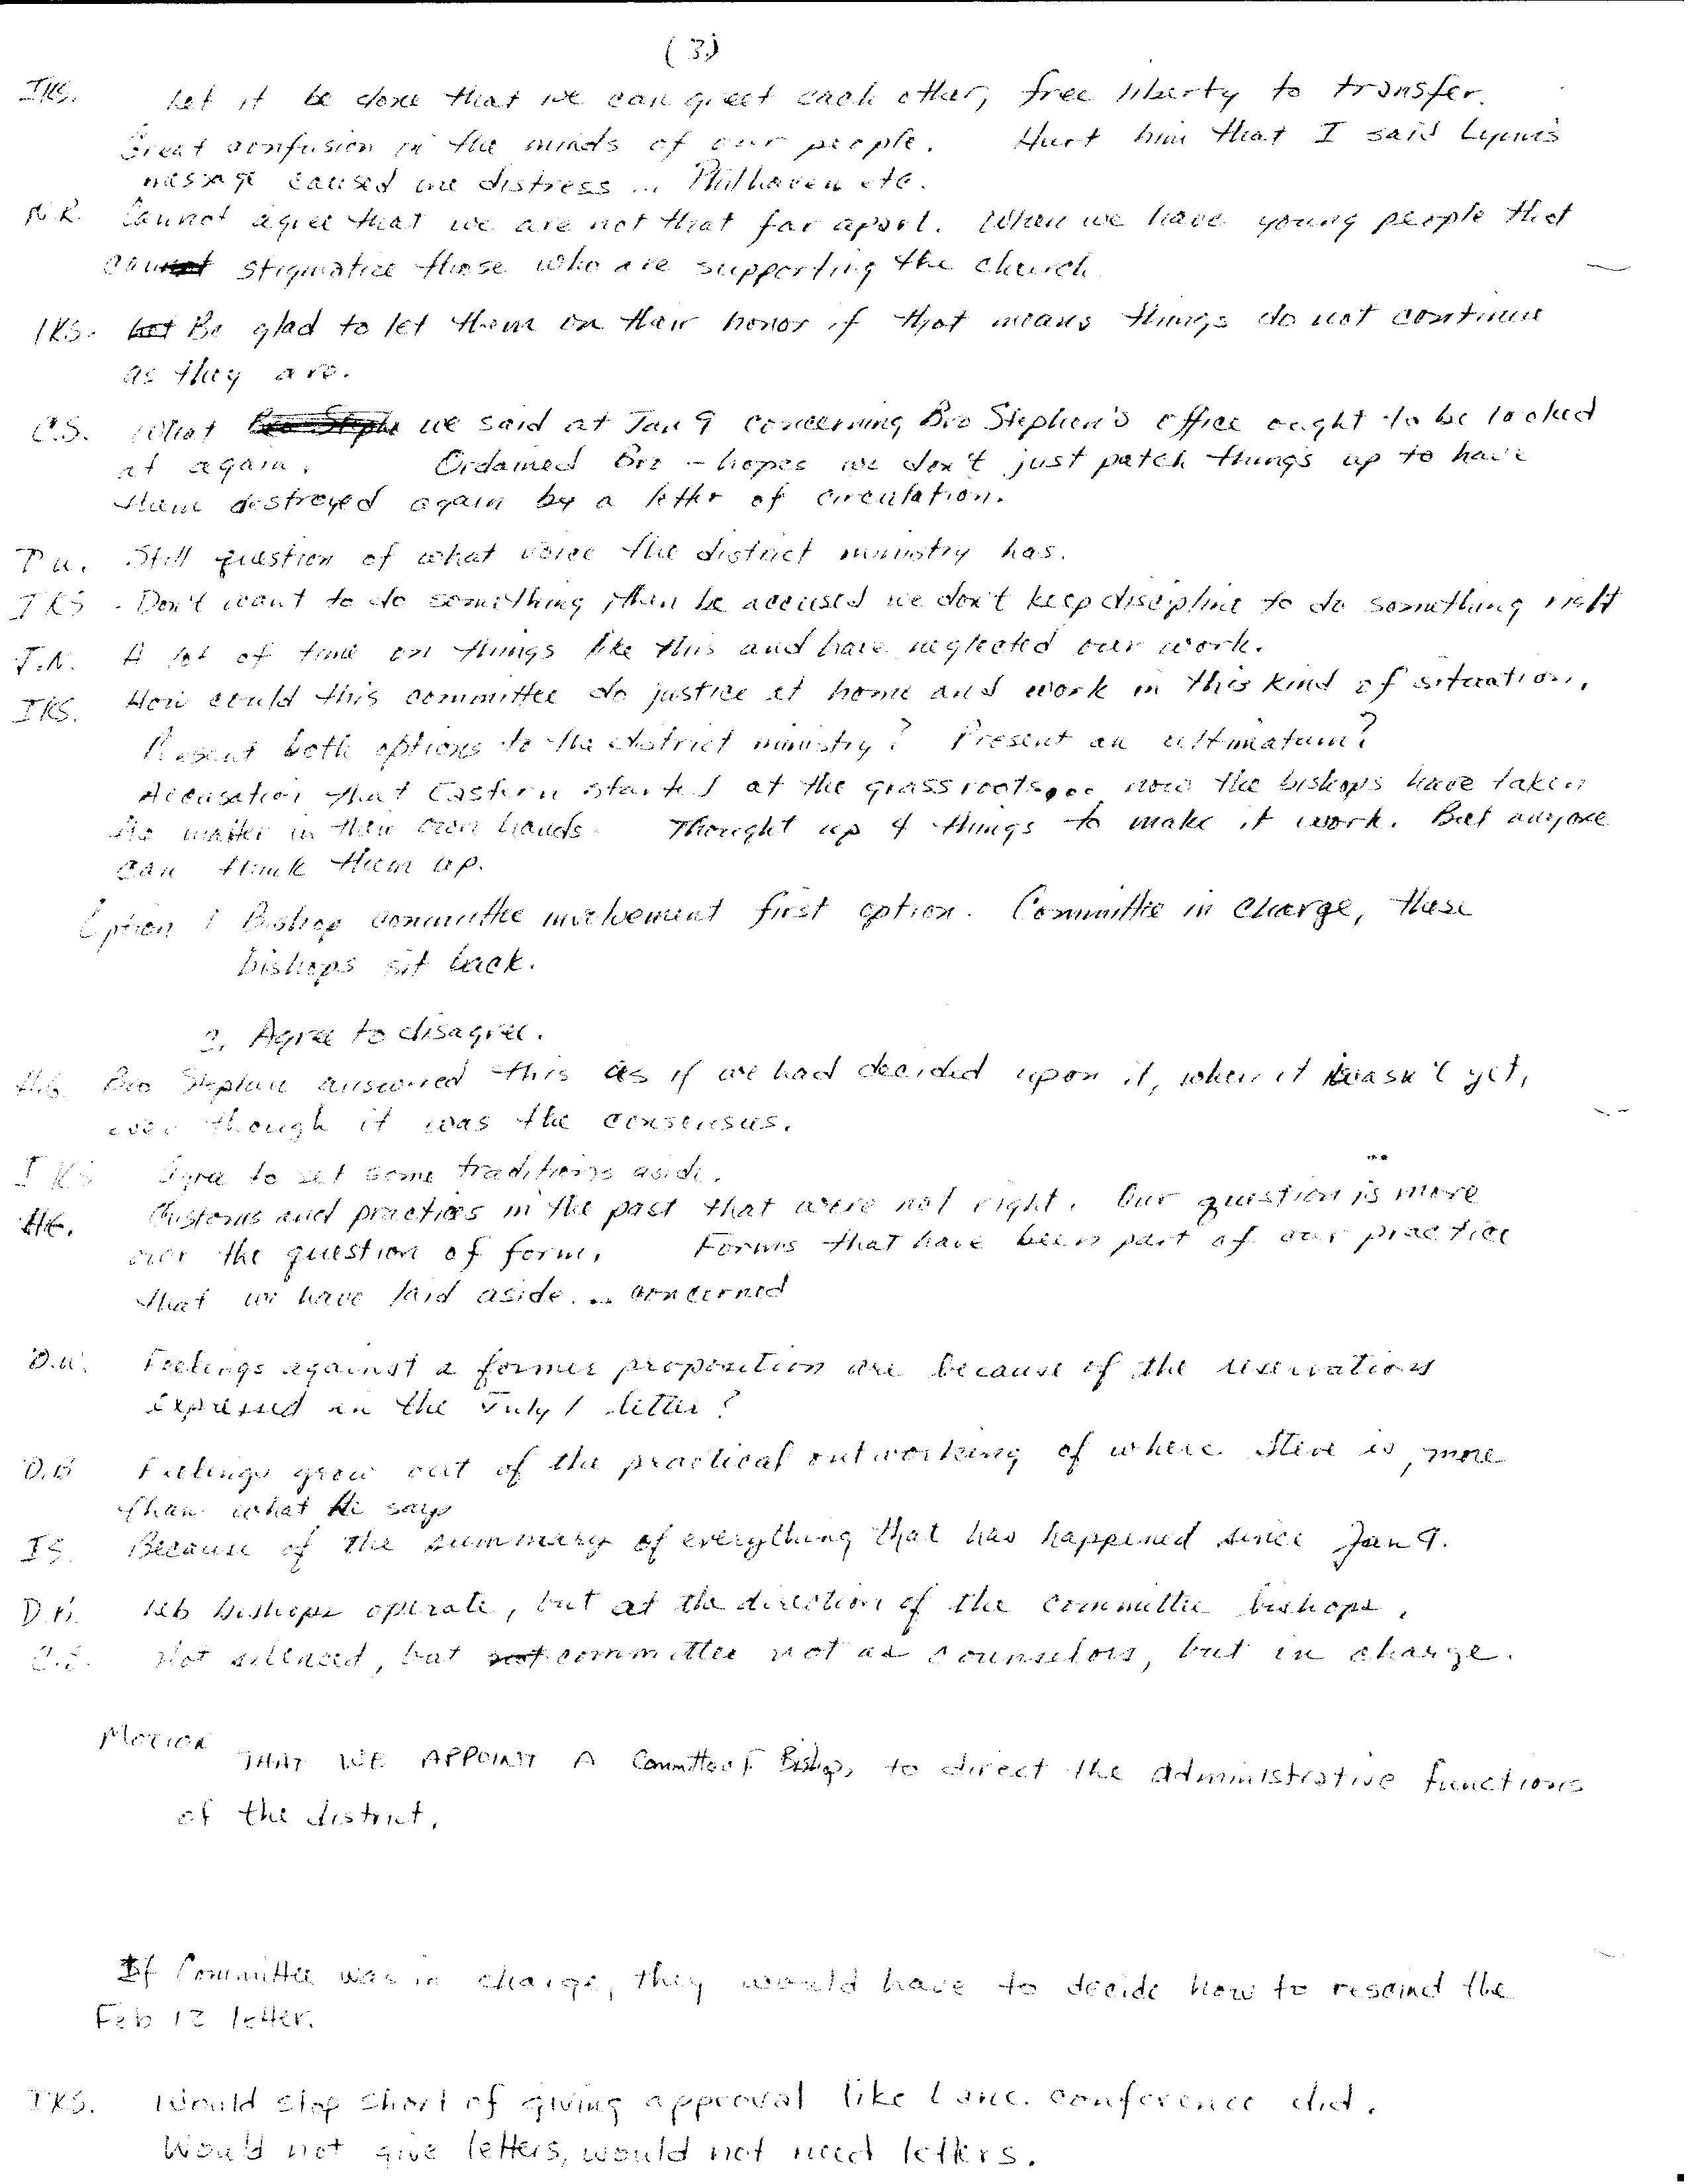 (3)
IKS. Let it be done that we can greet each other, free liberty to transfer.
Great confusion in the minds of our people. Hurt him that I said
message caused me distress ... Philhaven etc.
N.R. Cannot agree that we are not that far apart. When we have young people that
stigmatize those who are supporting the church
IKS. Be glad to let them on their honor if that means things do not continue
as they are.
C.S. What we said at Jan 9 concerning Bro Stephen's office ought to be looked
at again. Ordained Bro - hopes we don't just patch things up to have
them destroyed again by a letter of circulation.
Still question of what voice the district ministry has.
IKS - Don't want to do something, then be accused we don't keep discipline to do something right
J.N. A lot of time on things like this and have neglected our work.
IKS. How could this committee do justice at home and work in this kind of situation.
Present both options to the district ministry? Present an ultimatum?
Accusation that Eastern started at the grassroots... now the bishops have taken
the matter in their own hands. Thought up 4 things to make it work. But anyone
can think them up.
Option 1 Bishop committee involvement first option. Committee in charge, these
bishops sit back.
2. Agree to disagree.
Bro Stephen answered this as if we had decided upon it, when it wasn't yet,
even though it was the consensus.
IKS Agree to set some traditions aside.
Customs and practices in the past that were not right. Our question is more
over the question of form. Forms that have been part of our practice
that we have laid aside... concerned
Feelings against a former proposition are because of the reservations
expressed in the July 1 letter?
D.B Feelings grow out of the practical outworking of where Steve is, more
than what he says
IS Because of the summary of everything that has happened since Jan 9.
Leb bishops operate, but at the direction of the committee bishops.
C.S. Not silenced, but committee not as counselors, but in charge.
Motion THAT WE APPOINT A Committee of Bishops to direct the administrative functions
of the district.
If Committee was in charge, they would have to decide how to rescind the
Feb 12 letter.
IKS. Would stop short of giving approval like Lanc. conference did.
Would not give letters, would not need letters.